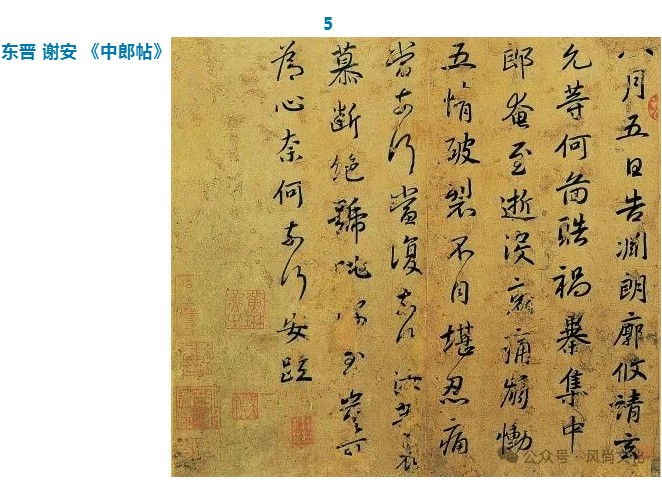 5
东晋 谢安 《中郎帖》
八月五日告渊朗廓攸靖玄
允等何图酷祸暴集中
郎奄至逝没哀痛崩恸
五情破裂不自堪忍痛
当奈何当复奈何
慕断绝号咷深至岂可
为心奈何奈何安疏
公众号·风尚文化